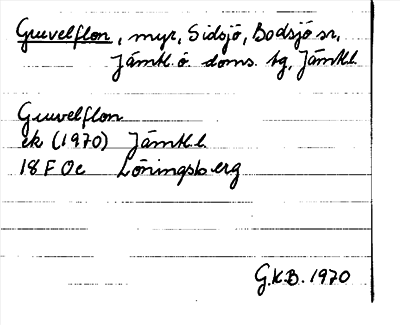 Gruvelflon, myr, Sidsjö, Bodsjö sn,
Jämtl. ö. doms. tg, Jämtl.l.
Gruvelflon
ek (1970) Jämtl.l.
18 F Oc Löningsberg
G.K.B. 1970